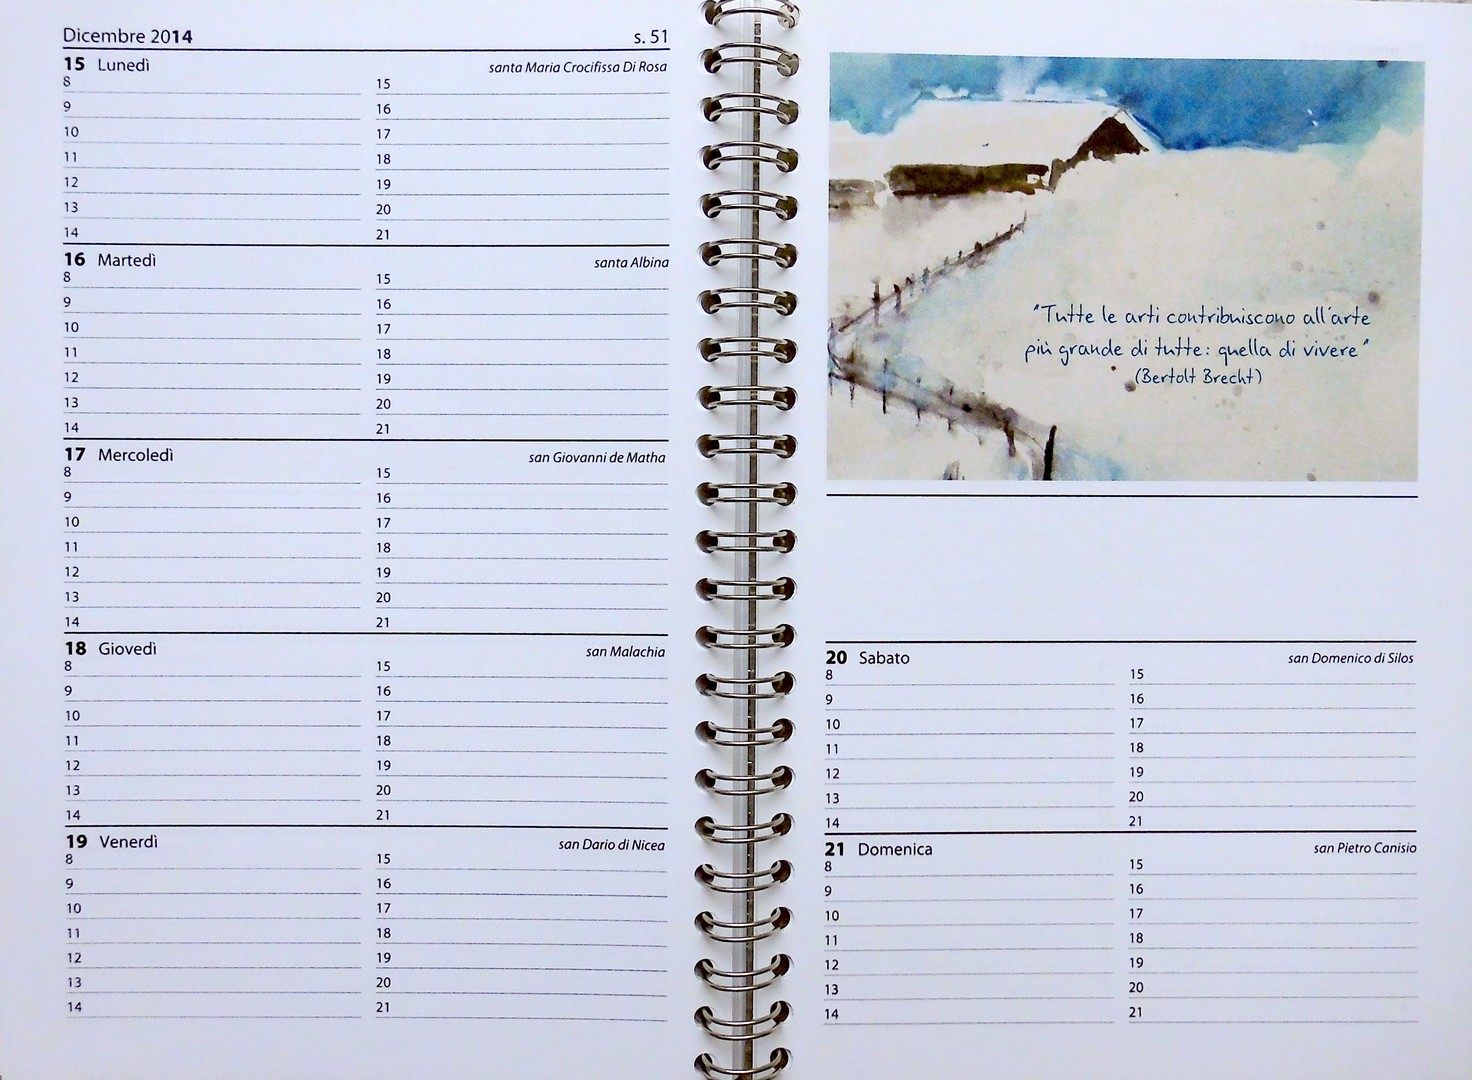 Dicembre 2014 s. 51
15 Lunedì santa Maria Crocifissa Di Rosa
8 15
9 16
10 17
11 18
12 19
13 20
14 21
16 Martedì santa Albina
8 15
9 16
10 17
11 18
12 19
13 20
14 21
17 Mercoledì san Giovanni de Matha
8 15
9 16
10 17
11 18
12 19
13 20
14 21
18 Giovedì san Malachia
8 15
9 16
10 17
11 18
12 19
13 20
14 21
19 Venerdì san Dario di Nicea
8 15
9 16
10 17
11 18
12 19
13 20
14 21
"Tutte le arti contribuiscono all'arte
più grande di tutte: quella di vivere"
(Bertolt Brecht)
20 Sabato san Domenico di Silos
8 15
9 16
10 17
11 18
12 19
13 20
14 21
21 Domenica san Pietro Canisio
8 15
9 16
10 17
11 18
12 19
13 20
14 21